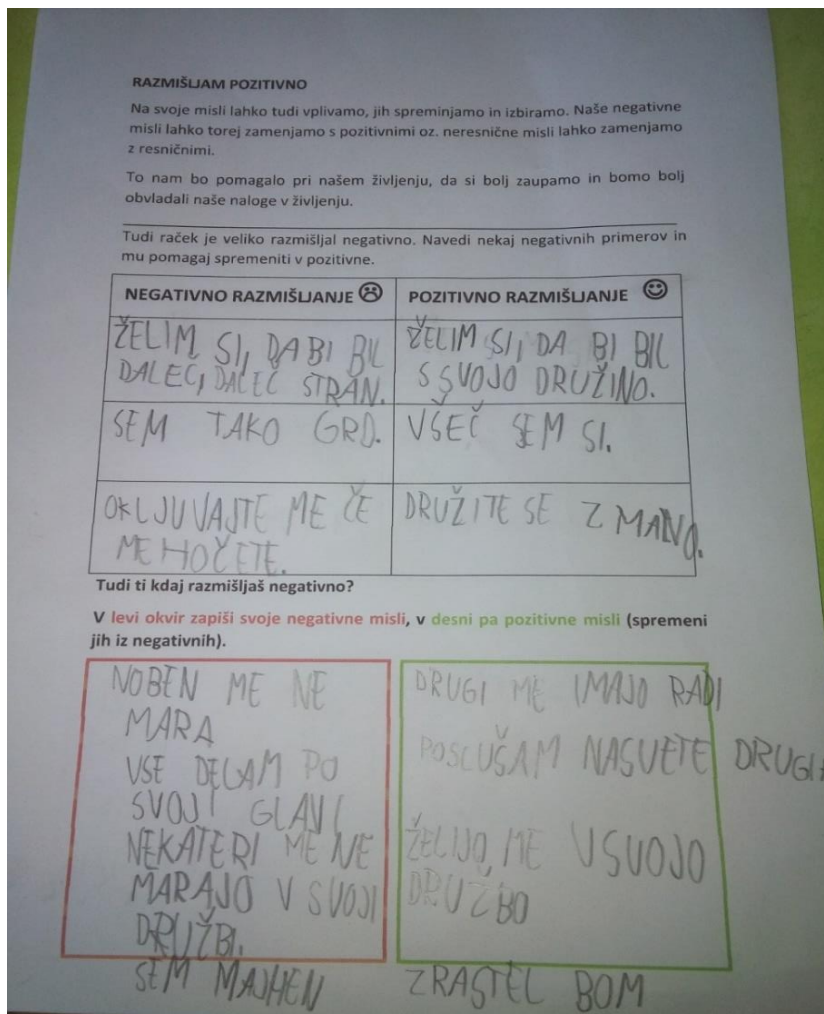 RAZMIŠLJAM POZITIVNO
Na svoje misli lahko tudi vplivamo, jih spreminjamo in izbiramo. Naše negativne
misli lahko torej zamenjamo s pozitivnimi oz. neresnične misli lahko zamenjamo
z resničnimi.
To nam bo pomagalo pri našem življenju, da si bolj zaupamo in bomo bolj
obvladali naše naloge v življenju.
Tudi raček je veliko razmišljal negativno. Navedi nekaj negativnih primerov in
mu pomagaj spremeniti v pozitivne.
NEGATIVNO RAZMIŠLJANJE
ŽELIM SI, DA BI BIL
DALEČ, DALEČ STRAN.
POZITIVNO RAZMIŠLJANJE
ŽELIM SI, DA BI BIL
S SVOJO DRUŽINO.
SEM TAKO GRD.
VŠEČ SEM SI.
OKLJUVAJTE ME ČE
ME HOČETE.
DRUŽITE SE Z MANO.
Tudi ti kdaj razmišljaš negativno?
V levi okvir zapiši svoje negativne misli, v desni pa pozitivne misli (spremeni
jih iz negativnih).
NOBEN ME NE
MARA
VSE DELAM PO
SVOJI GLAVI
NEKATERI ME NE
MARAJO V SVOJI
DRUŽBI.
SEM MAJHEN
DRUGI ME IMAJO RADI
POSLUŠAM NASVETE
ŽELIJO ME V SVOJO
DRUŽBO
ZRASTEL BOM